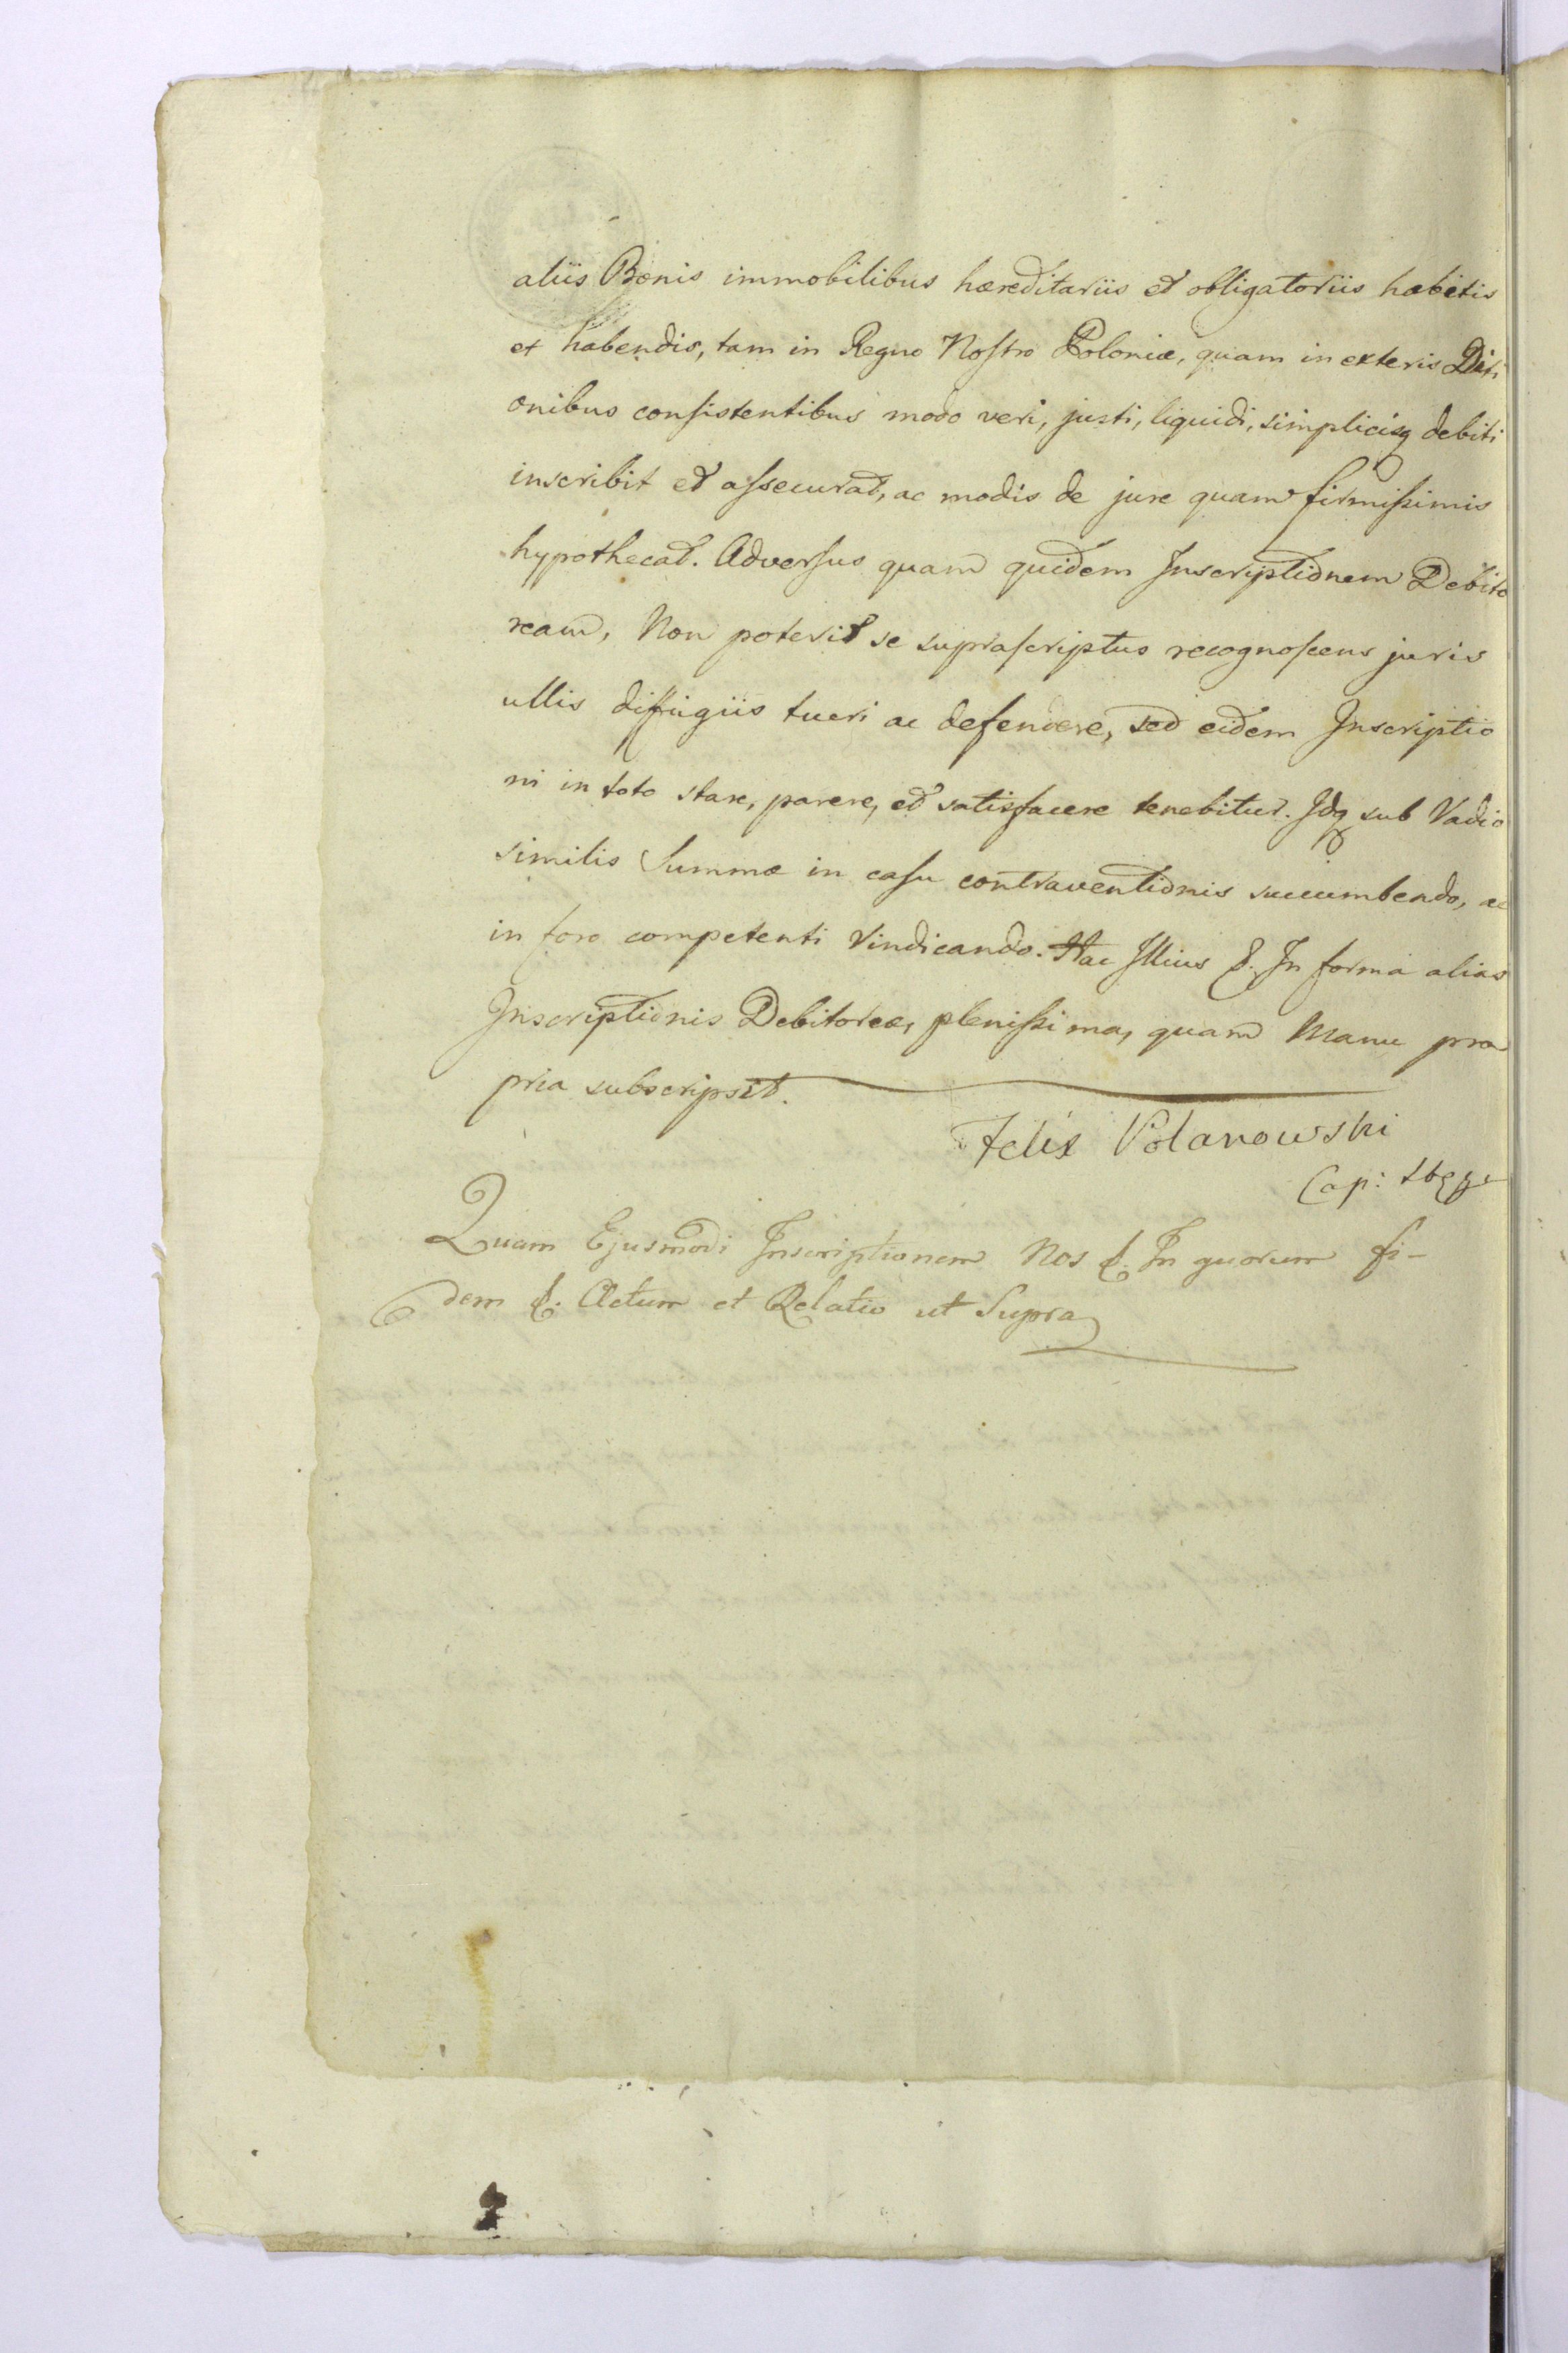 aliis Bonis immobilibus hæreditariis et obligatoriis habitis
et habendis, tam in Regno Nostro Poloniæ, quam in exteris Diti
onibus consistentibus modo veri, justi, liquidi, simplicisq debiti
inscribit et assecurat, ac modis de jure quam firmissimis
hypothecat. Adversus quam quidem Inscriptionem Debito
ream, Non poterit se suprascriptus recognoscens juris
ullis diffugiis tueri ac defendere, sed eidem Inscriptio
ni in toto stare, parere, et satisfacere tenebitur. Idq sub Vadio
similis Summæ in casu contraventionis succumbendo, ac
in foro competenti Vindicando. Hac Illius &. In forma alias
Inscriptionis Debitoreæ, plenissima, quam Manu pro
pria subscripsit.
Felix Polanowski
Cap:
Quam Ejusmodi Inscriptionem Nos &. In quorum fi-
dem &. Actum et Relatio ut Supra